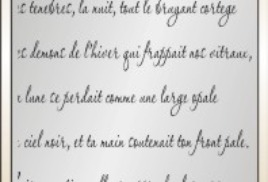 s ténèbres, la nuit, tout le bruyant cortège
es démons de l'hiver qui frappait nos vitraux,
lune se perdait comme une large opale
ciel noir, et ta main soutenait ton front pale.